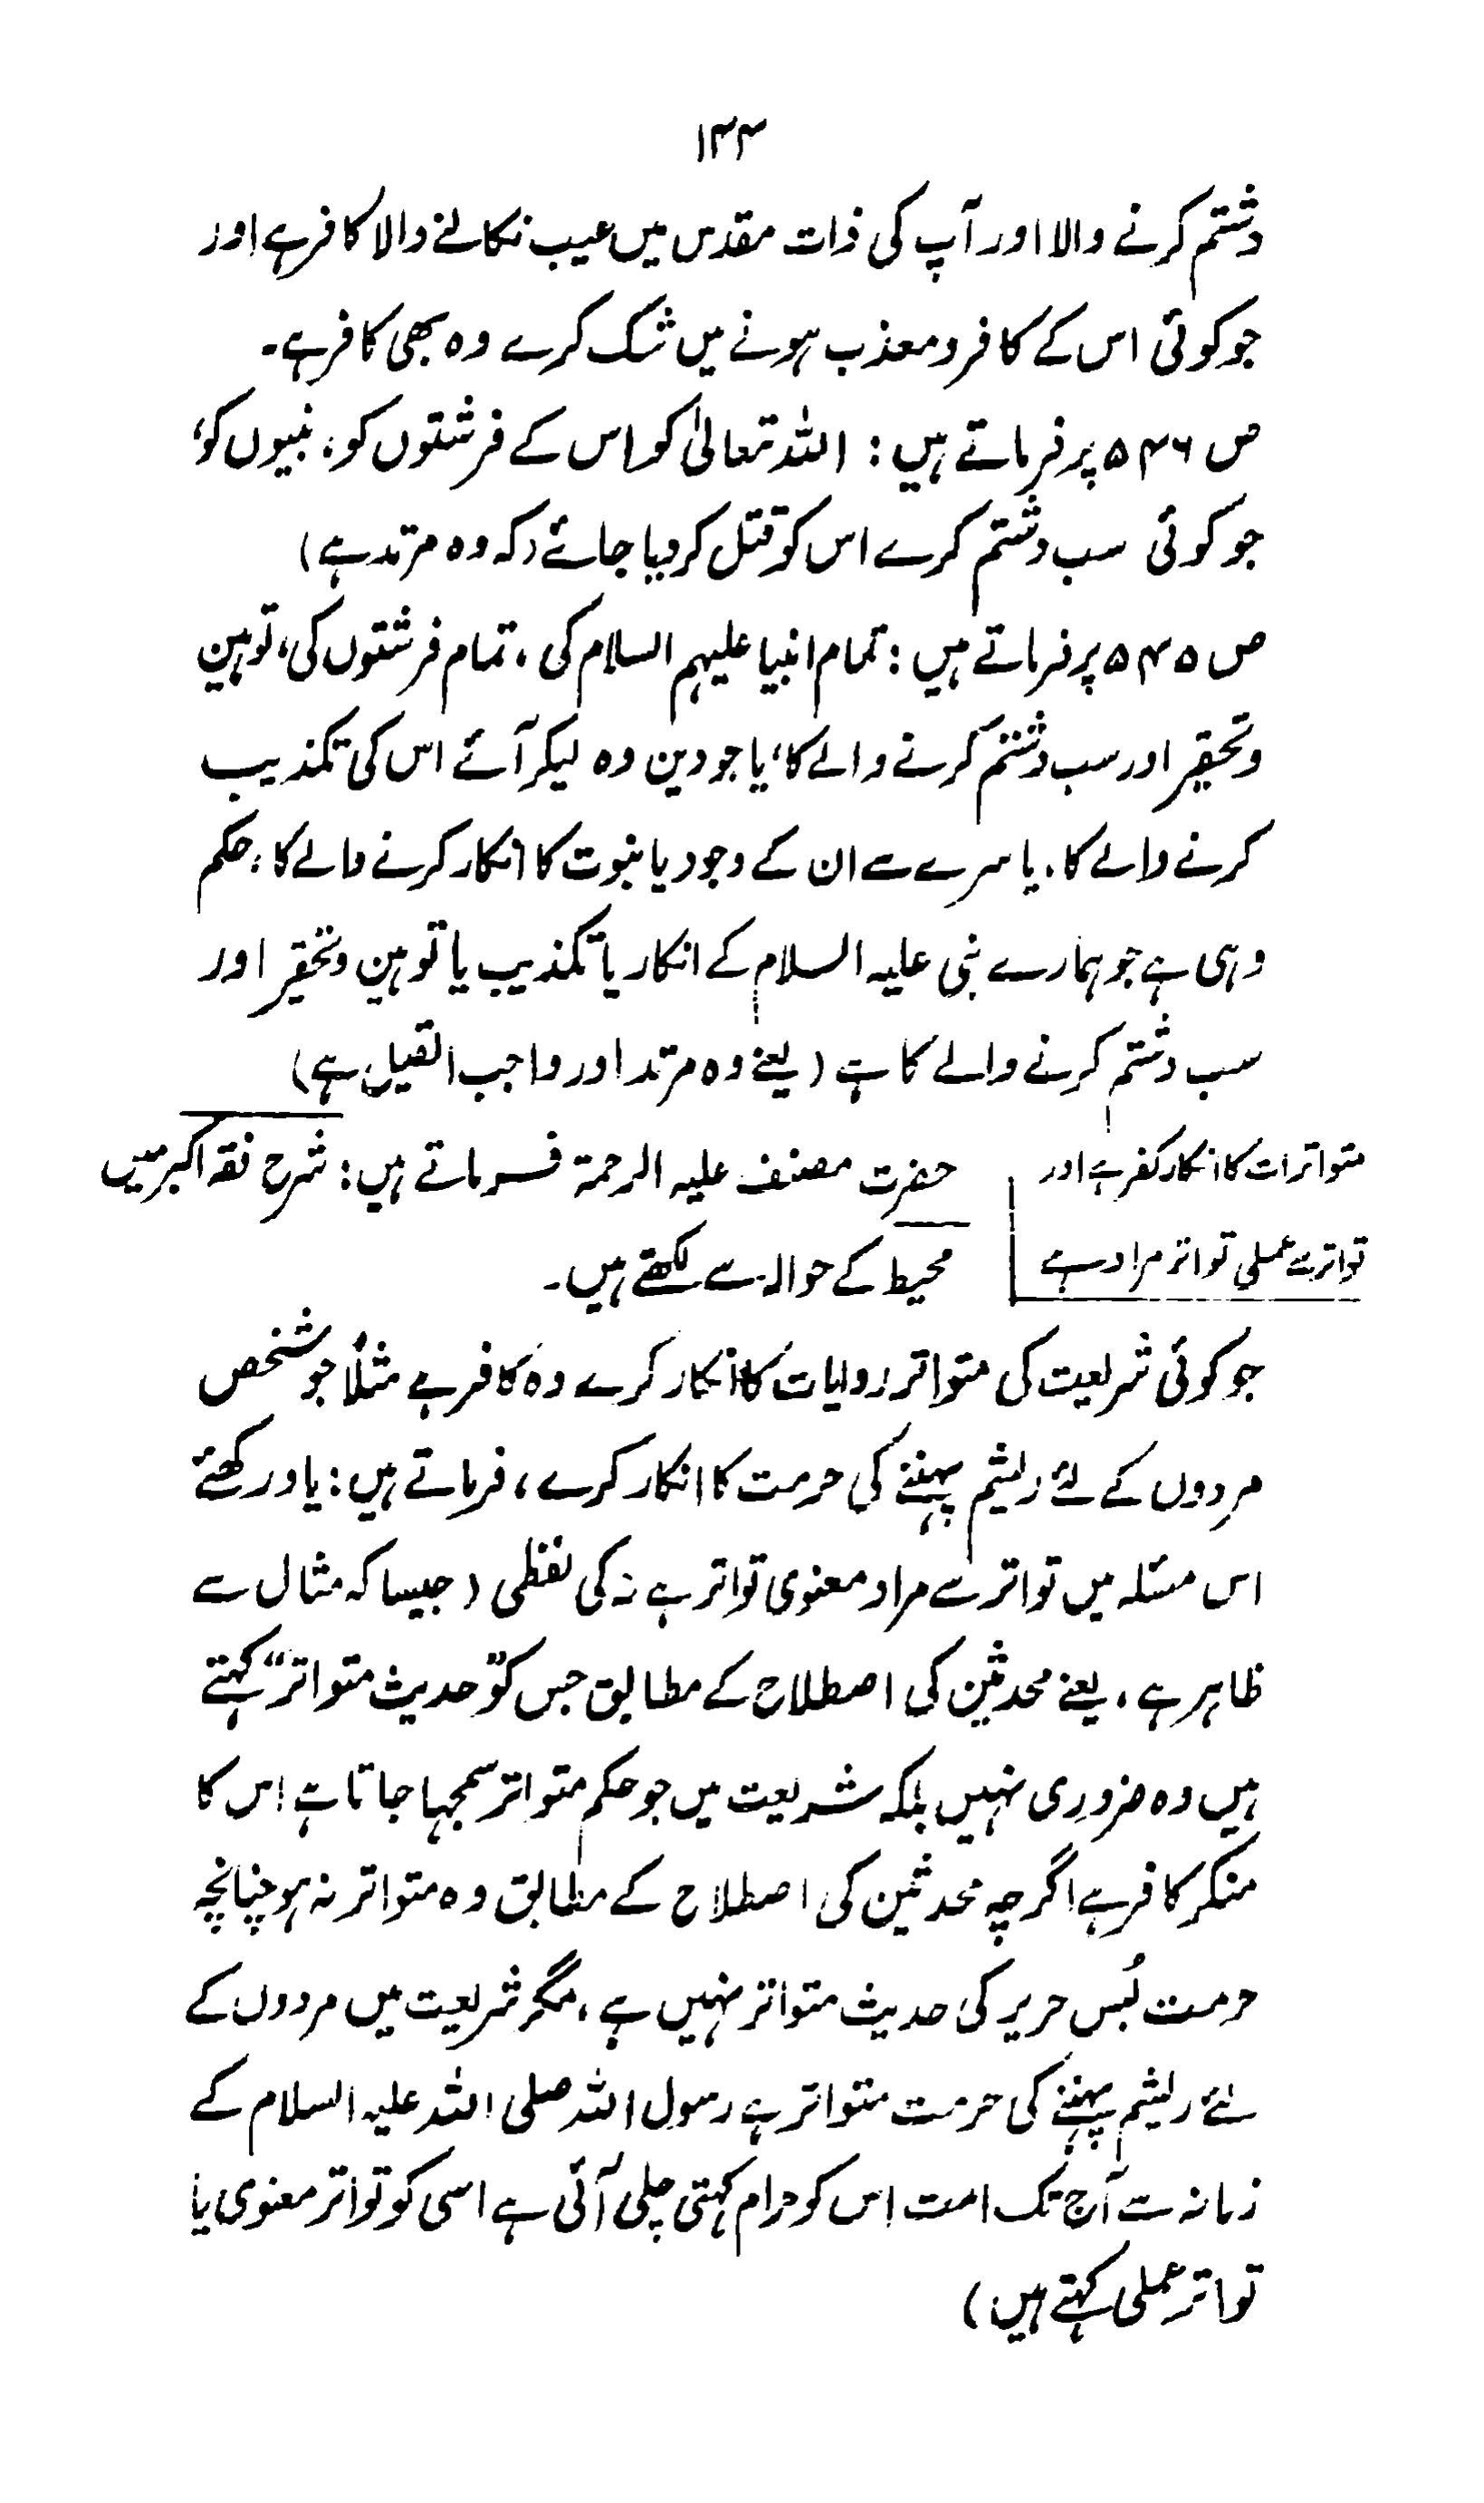 ۱۳۳
وشتم کرنے والا اور آپ کی ذات مقدس میں عیب نکالنے والا کافر ہے اور
جو کوئی اس کے کافر و معذب ہونے میں شک کرے وہ بھی کافر ہے۔
ص ۵۴۶ پر فرماتے ہیں : اللہ تعالیٰ کو اس کے فرشتوں کو، نبیوں کو،
جو کوئی سب وشتم کرے اس کو قتل کر دیا جائے (کہ وہ مرتد ہے)
ص ۵۴۵ پر فرماتے ہیں : تمام انبیا علیہم السلام کی، تمام فرشتوں کی، توہین
و تحقیر اور سب وشتم کرنے والے کا، یا جو دین وہ لیکر آئے اس کی تکذیب
کرنے والے کا، یا سرے سے ان کے وجود یا نبوت کا انکار کرنے والے کا، حکم
وہی ہے جو ہمارے نبی علیہ السلام کے انکار یا تکذیب یا توہین و تحقیر اور
سب وشتم کرنے والے کا ہے (یعنے وہ مرتد اور واجب القتل ہے)
متواترات کا انکار کفر ہے اور
تواتر سے عملی تواتر مراد ہے
حضرت مصنف علیہ الرحمۃ فرماتے ہیں : شرح فقہ اکبر میں
محیط کے حوالہ سے لکھتے ہیں۔
جو کوئی شریعت کی متواتر روایات کا انکار کرے وہ کافر ہے مثلاً جو شخص
مردوں کے لئے ریشم پہننے کی حرمت کا انکار کرے، فرماتے ہیں : یاد رکھئے
اس مسئلہ میں تواتر سے مراد معنوی تواتر ہے نہ کی لفظی (جیسا کہ مثال سے
ظاہر ہے، یعنے محدثین کی اصطلاح کے مطابق جس کو ”حدیث متواتر“ کہتے
ہیں وہ ضروری نہیں بلکہ شریعت میں جو حکم متواتر سمجہا جاتا ہے اس کا
منکر کافر ہے اگرچہ محدثین کی اصطلاح کے مطابق وہ متواتر نہ ہو چنانچہ
حرمت لُبس حریر کی حدیث متواتر نہیں ہے، مگر شریعت میں مردوں کے
لئے ریشم پہننے کی حرمت متواتر ہے رسول اللہ صلی اللہ علیہ السلام کے
زمانہ سے آج تک امت اس کو حرام کہتی چلی آئی ہے اسی کو تواتر معنوی یا
تواتر عملی کہتے ہیں)